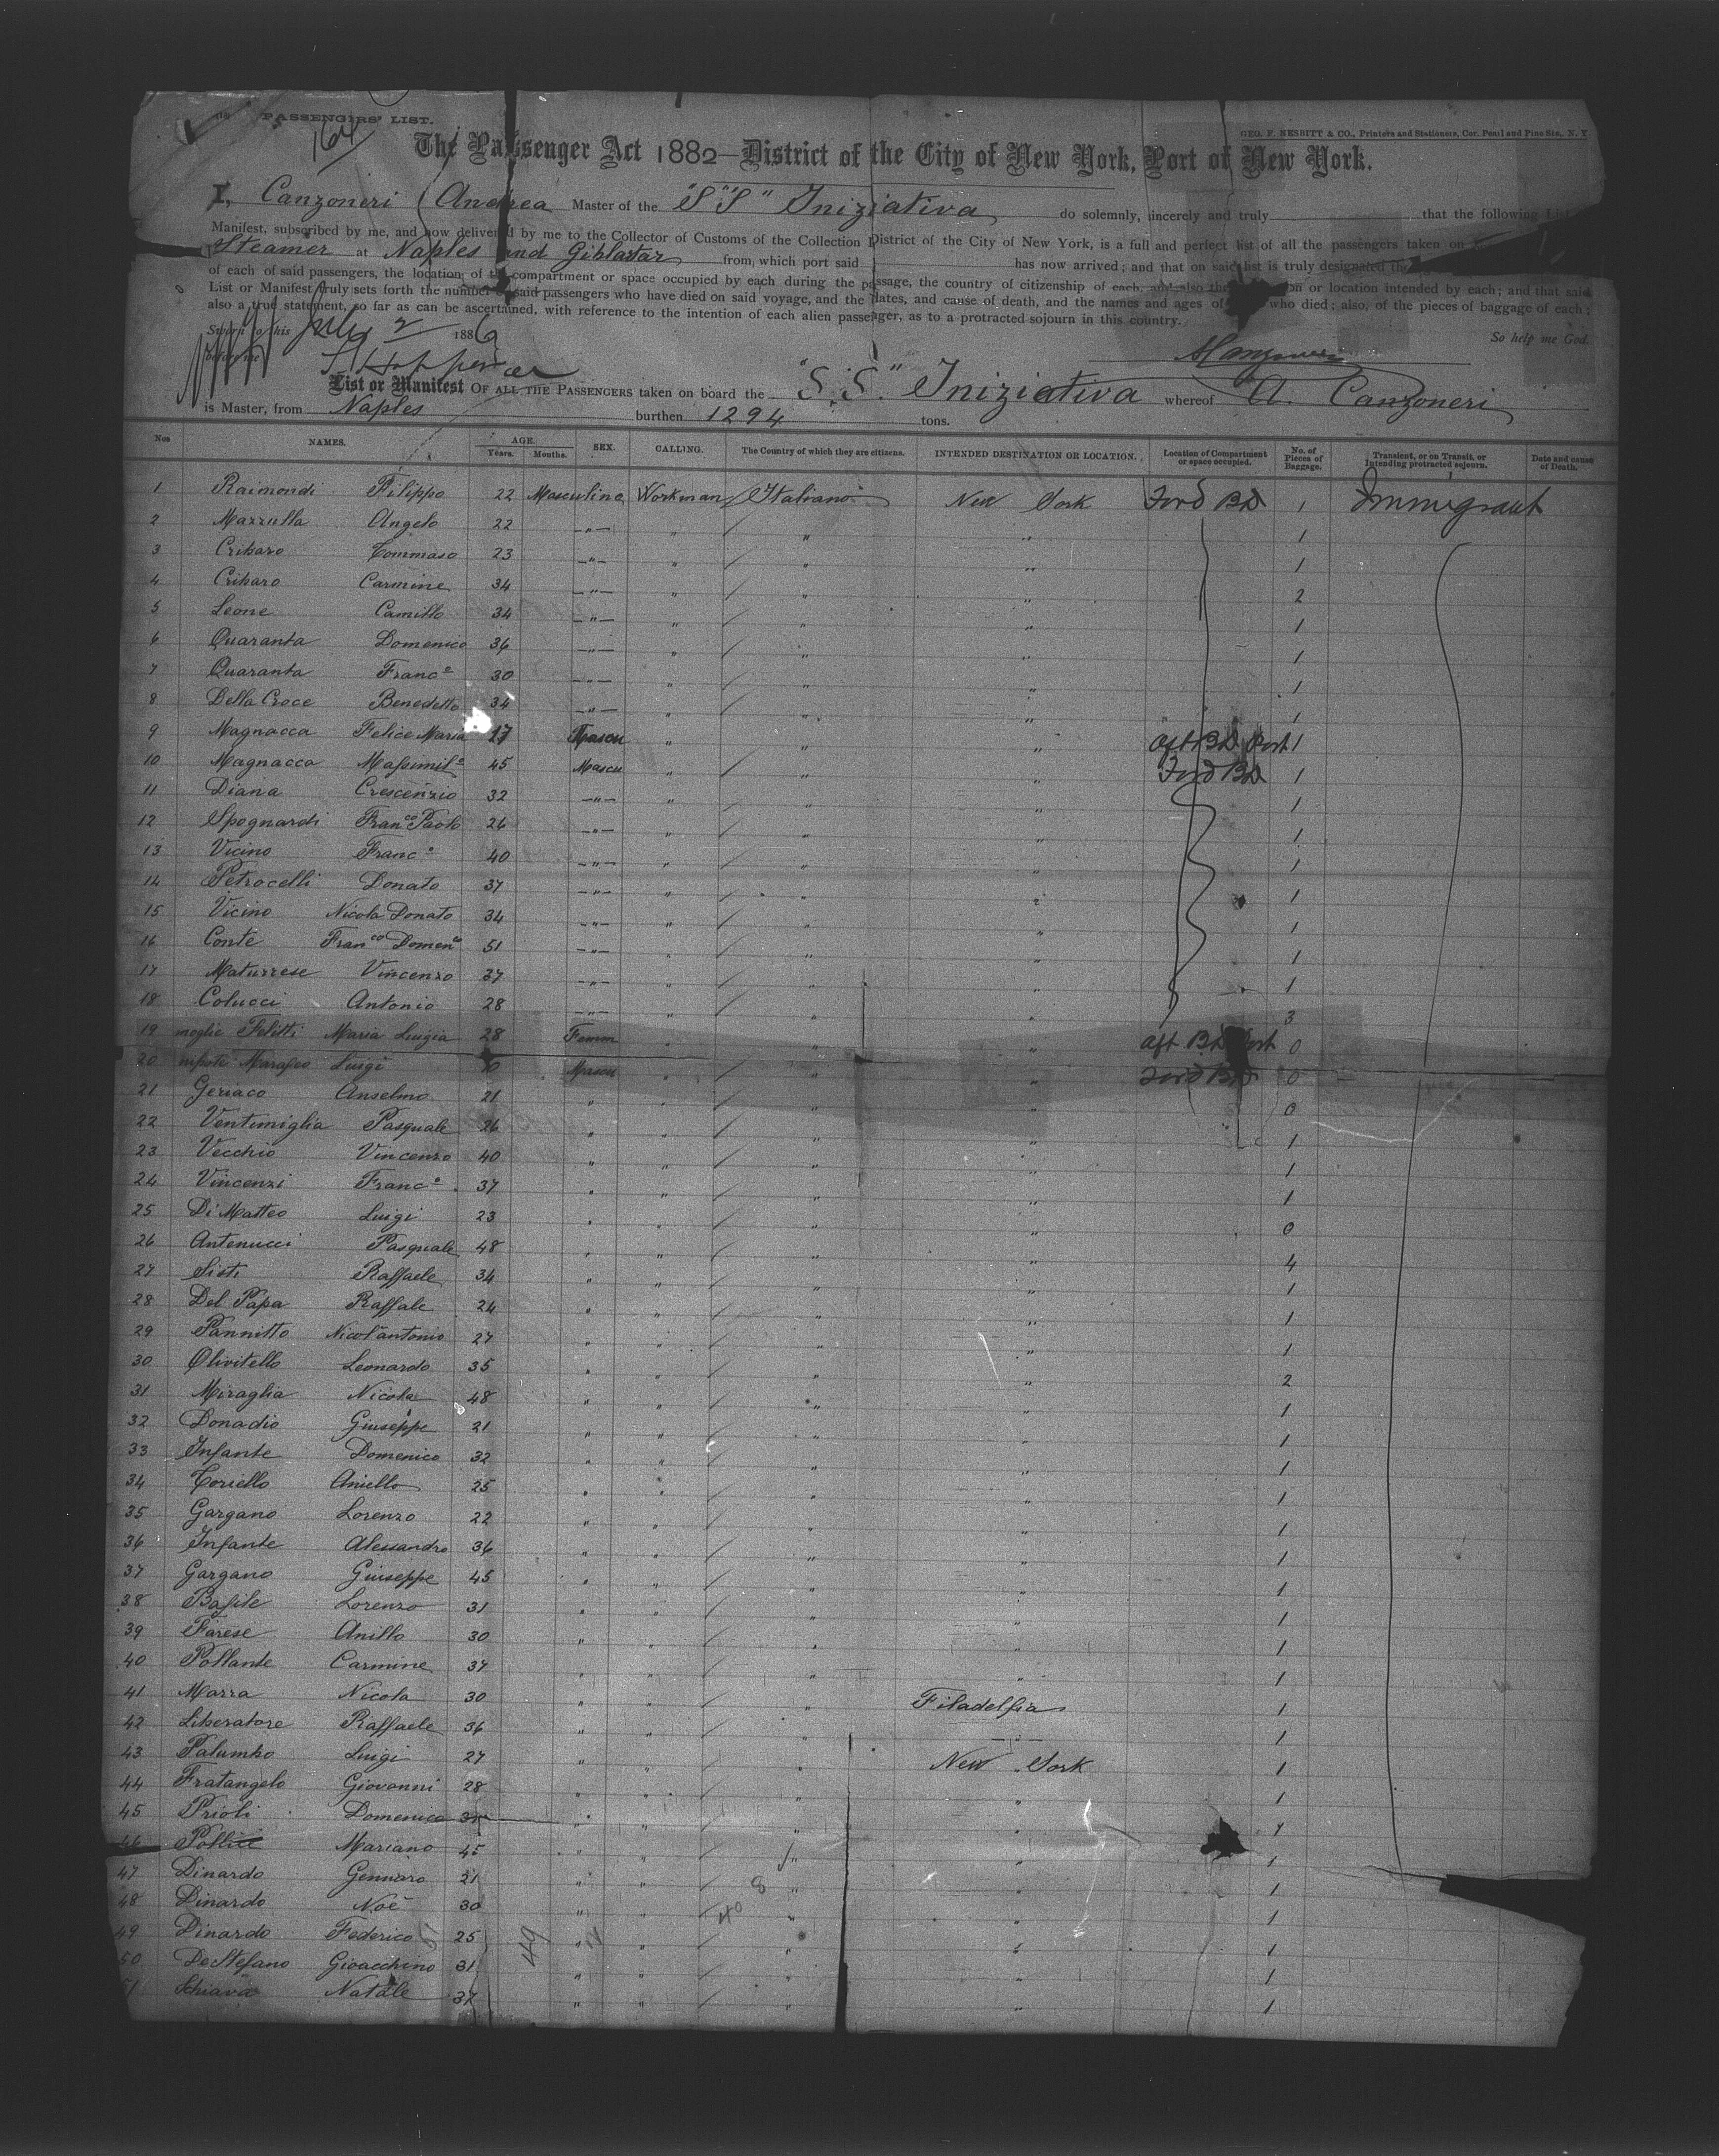 PASSENGERS' LIST.
164
GEO. F. NESBITT & CO., Printers and Stationers, Cor. Pearl and Pine Sts., N. Y.
The Passenger Act 1882—District of the City of New York, Port of New York.
I, Canzoneri Andrea Master of the "S"S" Iniziativa do solemnly, sincerely and truly that the following List
Manifest, subscribed by me, and now delivered by me to the Collector of Customs of the Collection District of the City of New York, is a full and perfect list of all the passengers taken on
Steamer at Naples and Giblatar from, which port said has now arrived; and that on said list is truly designated the
of each of said passengers, the location of the compartment or space occupied by each during the passage, the country of citizenship of each, and also the or location intended by each; and that said
List or Manifest truly sets forth the number said passengers who have died on said voyage, and the dates, and cause of death, and the names and ages of who died; also, of the pieces of baggage of each;
also a true statement, so far as can be ascertained, with reference to the intention of each alien passenger, as to a protracted sojourn in this country.
So help me God.
Sworn to this July 2 1886
before me
List or Manifest OF ALL THE PASSENGERS taken on board the "S.S." Iniziativa whereof A. Canzoneri
is Master, from Naples burthen 1294 tons.
Nos NAMES. AGE. Years. Months. SEX. CALLING. The Country of which they are citizens. INTENDED DESTINATION OR LOCATION. Location of Compartment or space occupied. No. of Pieces of Baggage. Transient, or on Transit, or Intending protracted sojourn. Date and cause of Death.
1 Raimondi Filippo 22 Masculino Workman Italiano New York Ford BD 1 Immigrant
2 Mazzulla Angelo 22 —"— " " " 1
3 Cribaro Tommaso 23 —"— " " " 1
4 Cribaro Carmine 34 —"— " " " 2
5 Leone Camillo 34 —"— " " " 1
6 Quaranta Domenico 36 —"— " " " 1
7 Quaranta Franc.o 30 —"— " " " 1
8 Della Croce Benedetto 34 —"— " " " 1
9 Magnacca Felice Maria 17 Mascu " " " Aft BD Port 1
10 Magnacca Massimil.o 45 Mascu " " " Ford BD 1
11 Diana Crescenzio 32 —"— " " " 1
12 Spognardi Fran.co Paolo 26 —"— " " " 1
13 Vicino Franc.o 40 —"— " " " 1
14 Petrocelli Donato 37 —"— " " " 1
15 Vicino Nicola Donato 34 —"— " " " 1
16 Conte Fran.co Domen.co 51 —"— " " " 1
17 Maturrese Vincenzo 37 —"— " " " 1
18 Colucci Antonio 28 —"— " " " 3
19 moglie Felitti Maria Luigia 28 Femm " " " Aft BD Port 0
20 nipote Marasco Luigi Mascu " " " Ford BD 0
21 Geriaco Anselmo 21 " " " " 0
22 Ventimiglia Pasquale 26 " " " " 1
23 Vecchio Vincenzo 40 " " " " 1
24 Vincenzi Franc.o 37 " " " " 1
25 Di Matteo Luigi 23 " " " " 0
26 Antenucci Pasquale 48 " " " " 4
27 Sisti Raffaele 34 " " " " 1
28 Del Papa Raffale 24 " " " " 1
29 Pannitto Nicolantonio 27 " " " " 1
30 Olivitello Leonardo 35 " " " " 2
31 Miraglia Nicola 48 " " " " 1
32 Donadio Giuseppe 21 " " " " 1
33 Infante Domenico 32 " " " " 1
34 Toriello Aniello 25 " " " " 1
35 Gargano Lorenzo 22 " " " " 1
36 Infante Alessandro 36 " " " " 1
37 Gargano Giuseppe 45 " " " " 1
38 Basile Lorenzo 31 " " " " 1
39 Farese Anillo 30 " " " " 1
40 Pollante Carmine 37 " " " " 1
41 Marra Nicola 30 " " " Filadelfia 1
42 Liberatore Raffaele 36 " " " —"— 1
43 Palumbo Luigi 27 " " " New York 1
44 Fratangelo Giovanni 28 " " " " 1
45 Prioli Domenico " " " "
46 Pollice Mariano 45 " " " " 1
47 Dinardo Gennaro 21 " " " " 1
48 Dinardo Noè 30 " " " " 1
49 Dinardo Federico 25 " " " " 1
50 De Stefano Gioacchino 31 " " " " 1
51 Schiavo Natale 37 " " " " 1
49
40
8